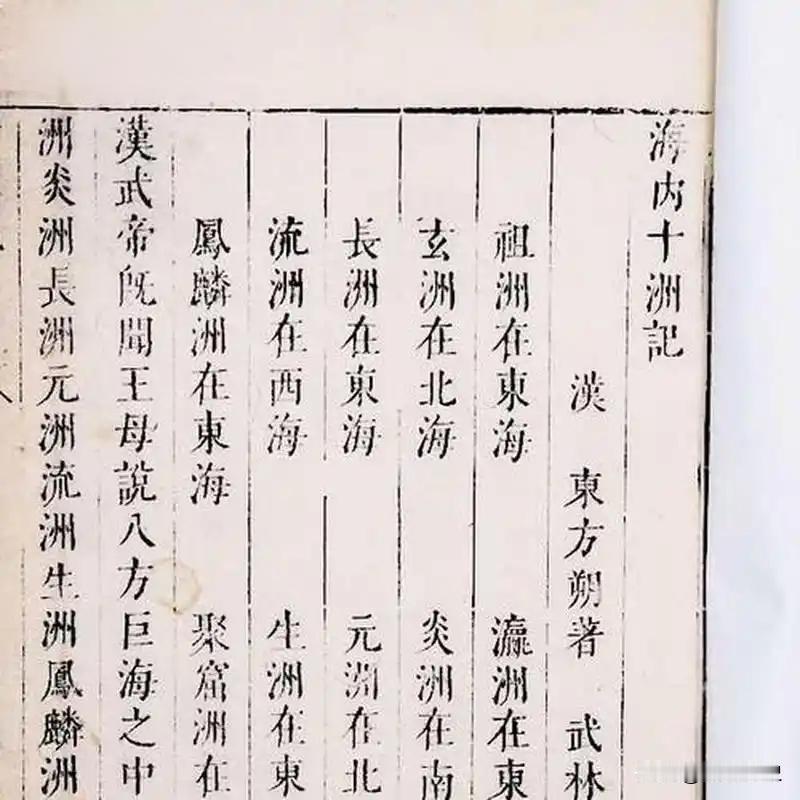 海内十洲記
漢 東方朔著 武林
祖洲在東海 瀛洲在東
玄洲在北海 炎洲在南
長洲在東海 元洲在北
流洲在西海 生洲在東
鳳麟洲在東海 聚窟洲在
漢武帝旣聞王母說八方巨海之中
洲炎洲長洲元洲流洲生洲鳳麟洲